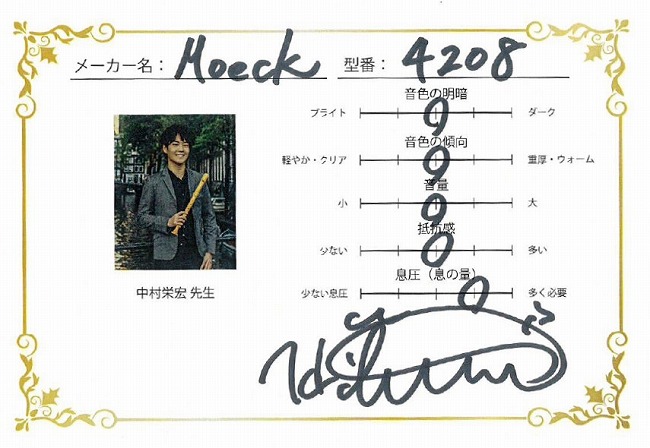 メーカー名： Moeck 型番： 4208
音色の明暗
ブライト ダーク
音色の傾向
軽やか・クリア 重厚・ウォーム
音量
小 大
抵抗感
少ない 多い
息圧（息の量）
少ない息圧 多く必要
中村栄宏 先生